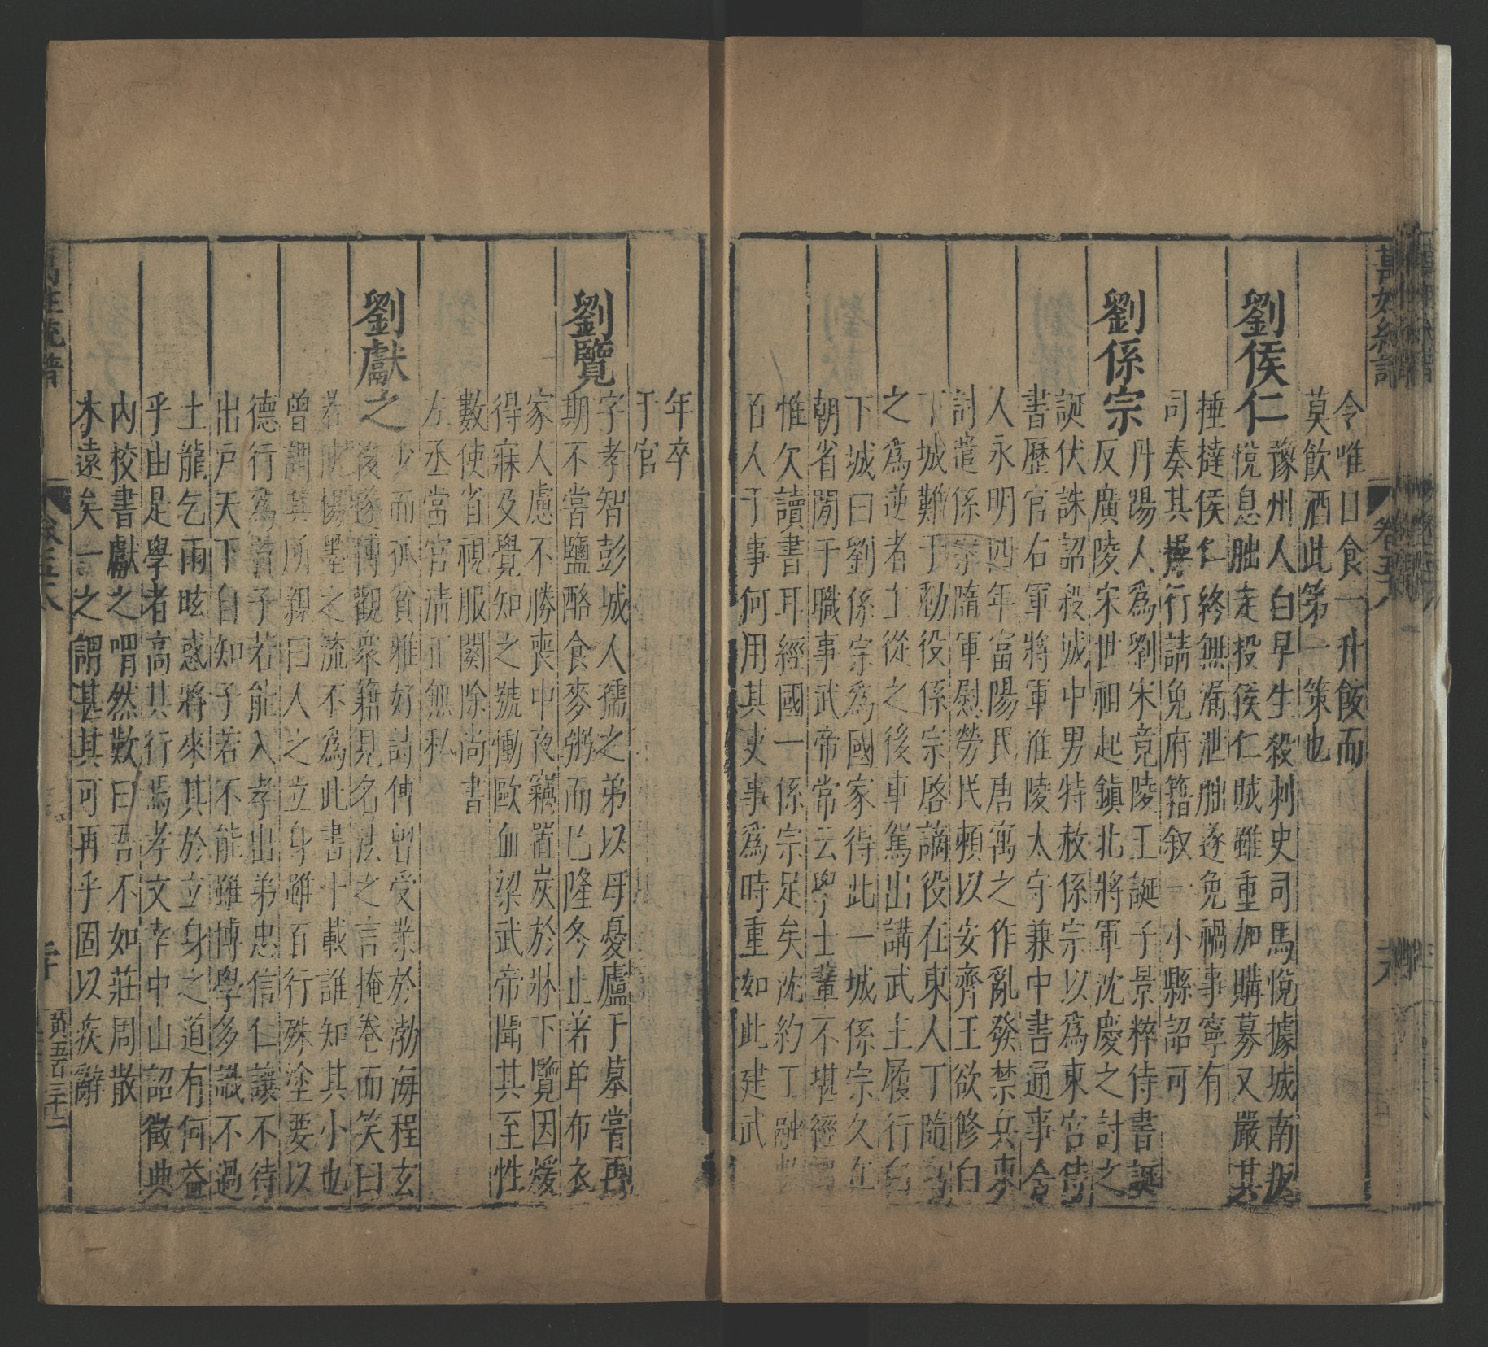 令唯日食一升飯而
莫飲酒此第一策也
劉侯仁
豫州人白早生殺刺史司馬悅據城南叛
悅息朏走投侯仁賊雖重加購募又嚴其
捶撻侯仁終無漏泄朏遂免禍事寧有
司奏其操行請免府籍叙一小縣詔可
劉係宗
丹陽人為劉宋竟陵王誕子景粹侍書誕
反廣陵宋世祖起鎮北將軍沈慶之討之
誕伏誅詔殺城中男特赦係宗以為東宮侍
書歷官右軍將軍淮陵太守兼中書通事舍
人永明四年富陽民唐寓之作亂發禁兵東
討遣係宗隨軍慰勞民賴以安齊王欲修白
下城難于動役係宗啓謫役在東人丁隨寓
之為逆者上從之後車駕出講武上履行白
下城曰劉係宗為國家得此一城係宗久在
朝省閑于職事武帝常云學士輩不堪經國
惟欠讀書耳經國一係宗足矣沈約丁融數
百人于事何用其吏事為時重如此建武
年卒
于官
劉覽
字孝智彭城人孺之弟以母憂廬于墓嘗再
期不嘗鹽酪食麥粥而已隆冬止著单布衣
家人慮不勝喪中夜竊置炭於牀下覽因煖
得寐及覺知之號慟歐血梁武帝聞其至性
數使省視服闋除尚書
左丞當官清正無私
劉獻之
少而孤貧雅好詩傳曾受業於渤海程玄
後遂博觀衆籍見名法之言掩卷而笑曰
若使楊墨之流不為此書千載誰知其小也
曾謂其所親曰人之立身雖百行殊塗要以
德行為首子若能入孝出弟忠信仁讓不待
出戶天下自知子若不能雖博學多識不過
土龍乞雨眩惑將來其於立身之道有何益
乎由是學者高其行焉孝文幸中山詔徵典
內校書獻之喟然歎曰吾不如莊周散
木遠矣一之謂甚其可再乎固以疾辭